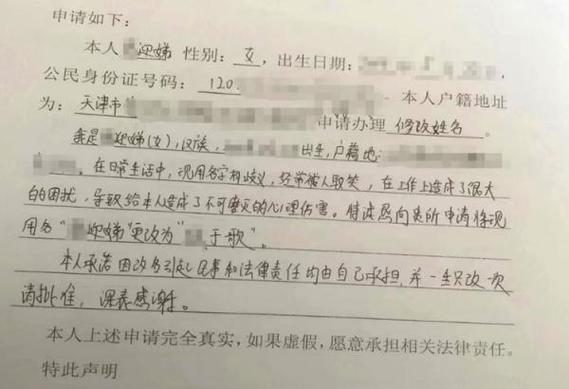 申请如下:
本人 迎娣 性别: 女 ,出生日期:
公民身份证号码: 120. 本人户籍地址
为: 天津市 申请办理 修改姓名 。
我是 迎娣(女),汉族, 出生,户籍地:
。在日常生活中,现用名字有歧义,经常被人取笑,在工作上造成了很大
的困扰,导致给本人造成了不可磨灭的心理伤害。特诚恳向贵所申请将现
用名“ 迎娣”更改为“ 于歌”。
本人承诺因改名引起民事和法律责任均由自己承担,并一生只改一次
请批准,深表感谢。
本人上述申请完全真实,如果虚假,愿意承担相关法律责任。
特此声明